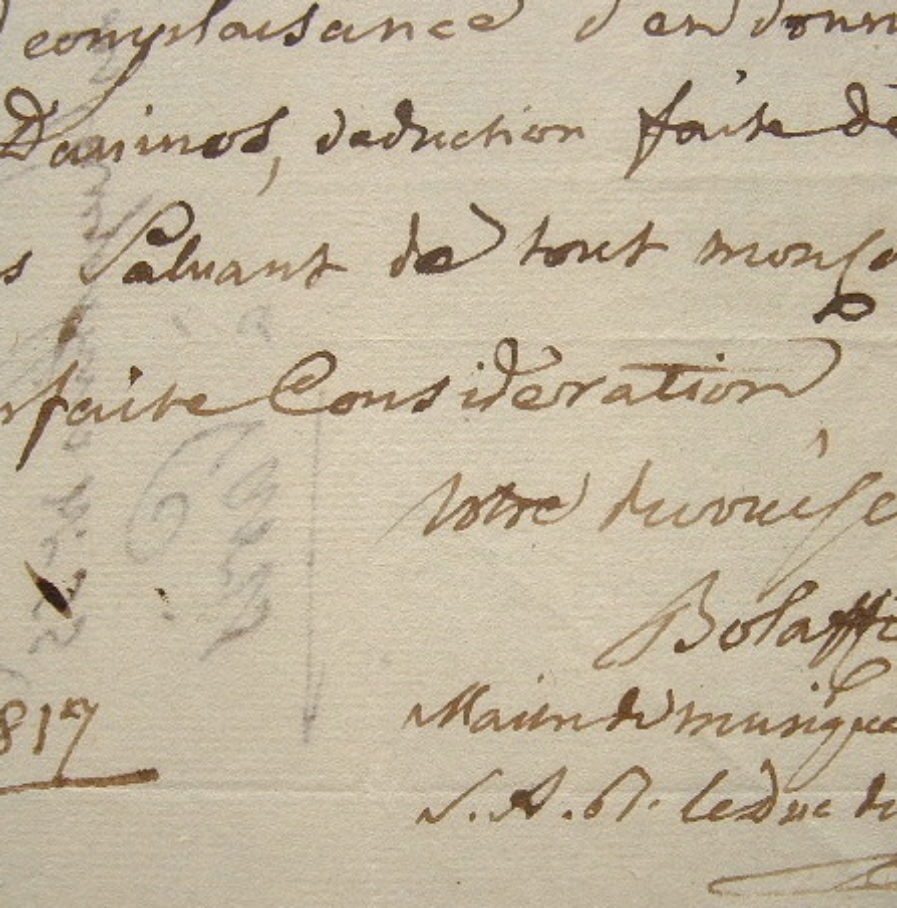 complaisance d'en donn
Daninos, deduction faite de
s Saluant de tout mon Co
rfaite Consideration
Votre
Bolaffi
Maitre de musique
S. A. R. le Duc de
817